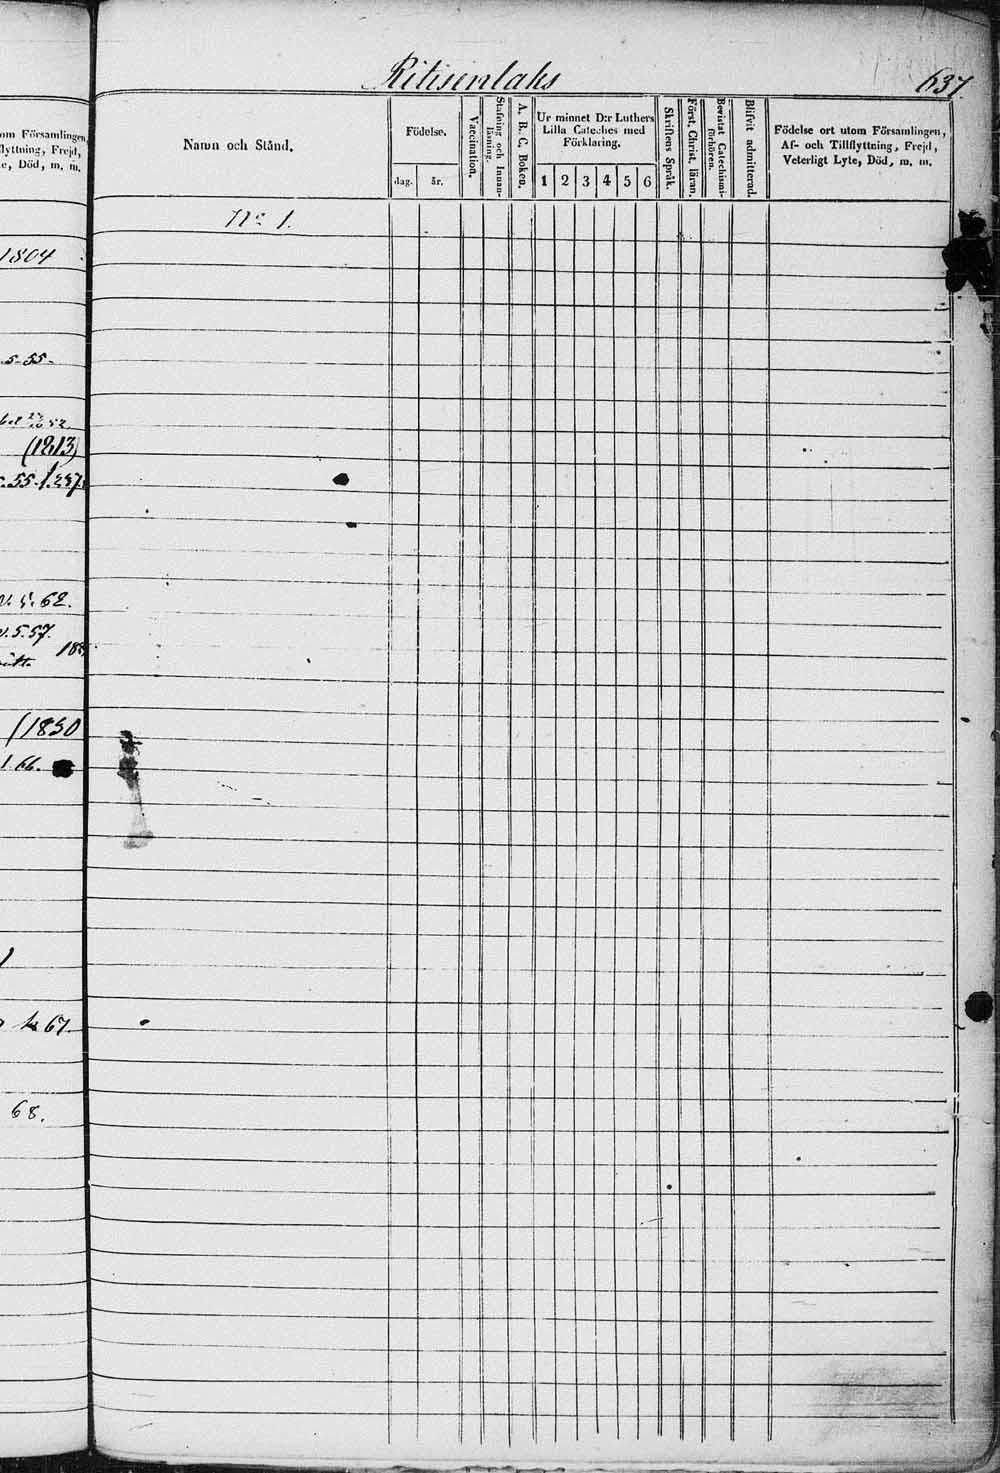 Ritisenlaks
637.
om Församlingen,
flyttning, Frejd,
e, Död, m. m.
Namn och Stånd.
Födelse.
dag. år.
Vaccination.
Stafning och Innan-
läsning.
A. B. C. Boken.
Ur minnet D:r Luthers
Lilla Cateches med
Förklaring.
1 2 3 4 5 6
Skriftens Språk.
Först. Christ. läran.
Bevistat Catechismi-
förhören.
Blifvit admitterad.
Födelse ort utom Församlingen,
Af- och Tillflyttning, Frejd,
Veterligt Lyte, Död, m. m.
No 1.
1804
5-55-
(1813)
55. 1.237.
v. 5. 62.
v. 5.57.
188
(1830
1.66.
67.
68.